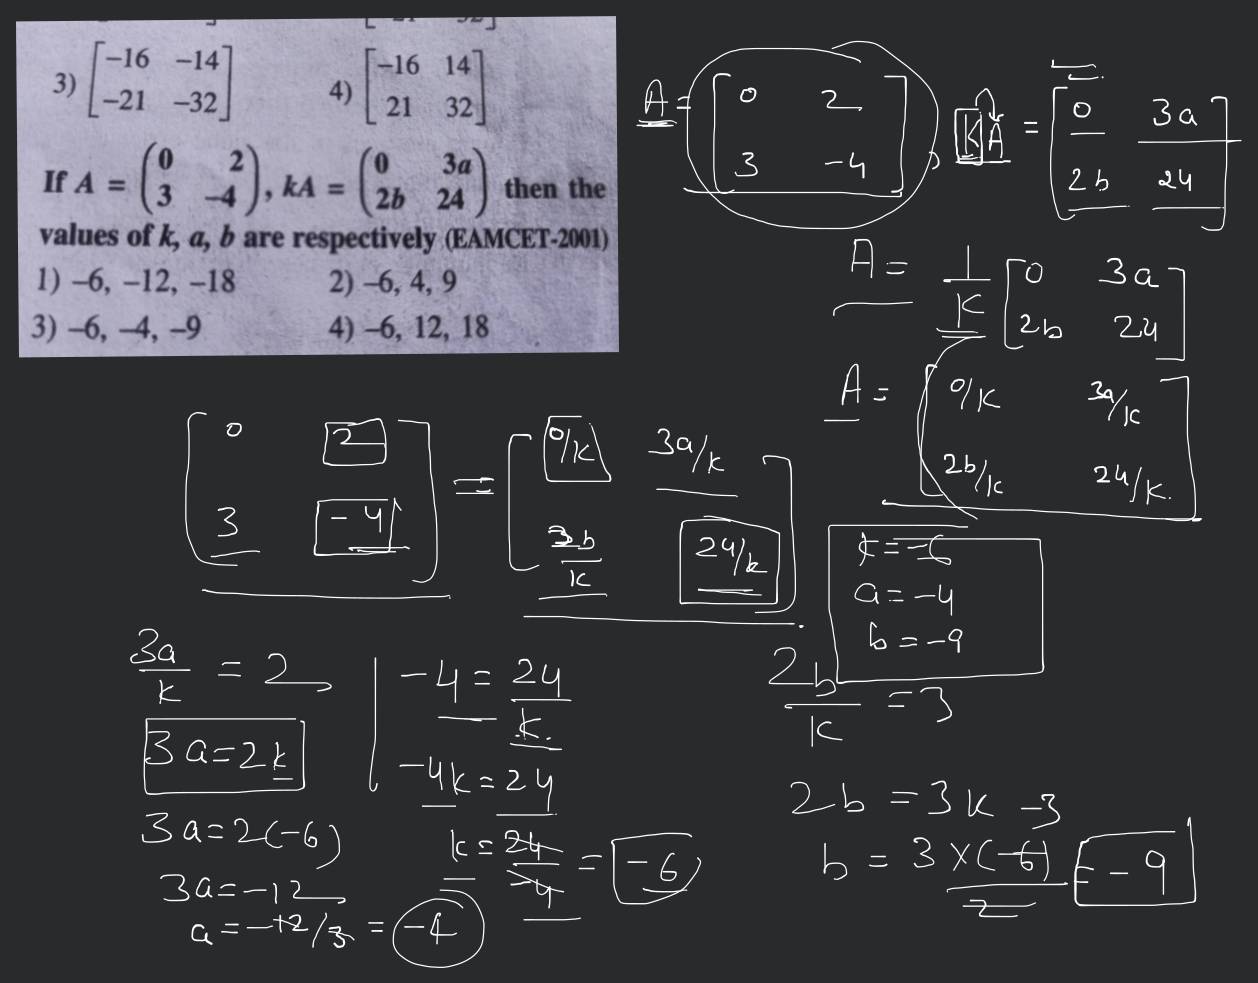 3) [−16 −14
−21 −32]
4) [−16 14
21 32]
If A = (0 2
3 −4), kA = (0 3a
2b 24) then the
values of k, a, b are respectively (EAMCET-2001)
1) −6, −12, −18 2) −6, 4, 9
3) −6, −4, −9 4) −6, 12, 18
A = [0 2
3 −4], KA = [0 3a
2b 24]
A = 1/K [0 3a
2b 24]
A = [0/K 3a/K
2b/K 24/K.]
[0 2
3 −4] = [0/K 3a/K
b/K 24/k]
k = −6
a = −4
b = −9
3a/k = 2
3a = 2k
3a = 2(−6)
3a = −12
a = −12/3 = −4
−4 = 24/k.
−4k = 24
k = 24/−4 = −6
2b/K = 3
2b = 3K −3
b = 3 × (−6)/2 = −9